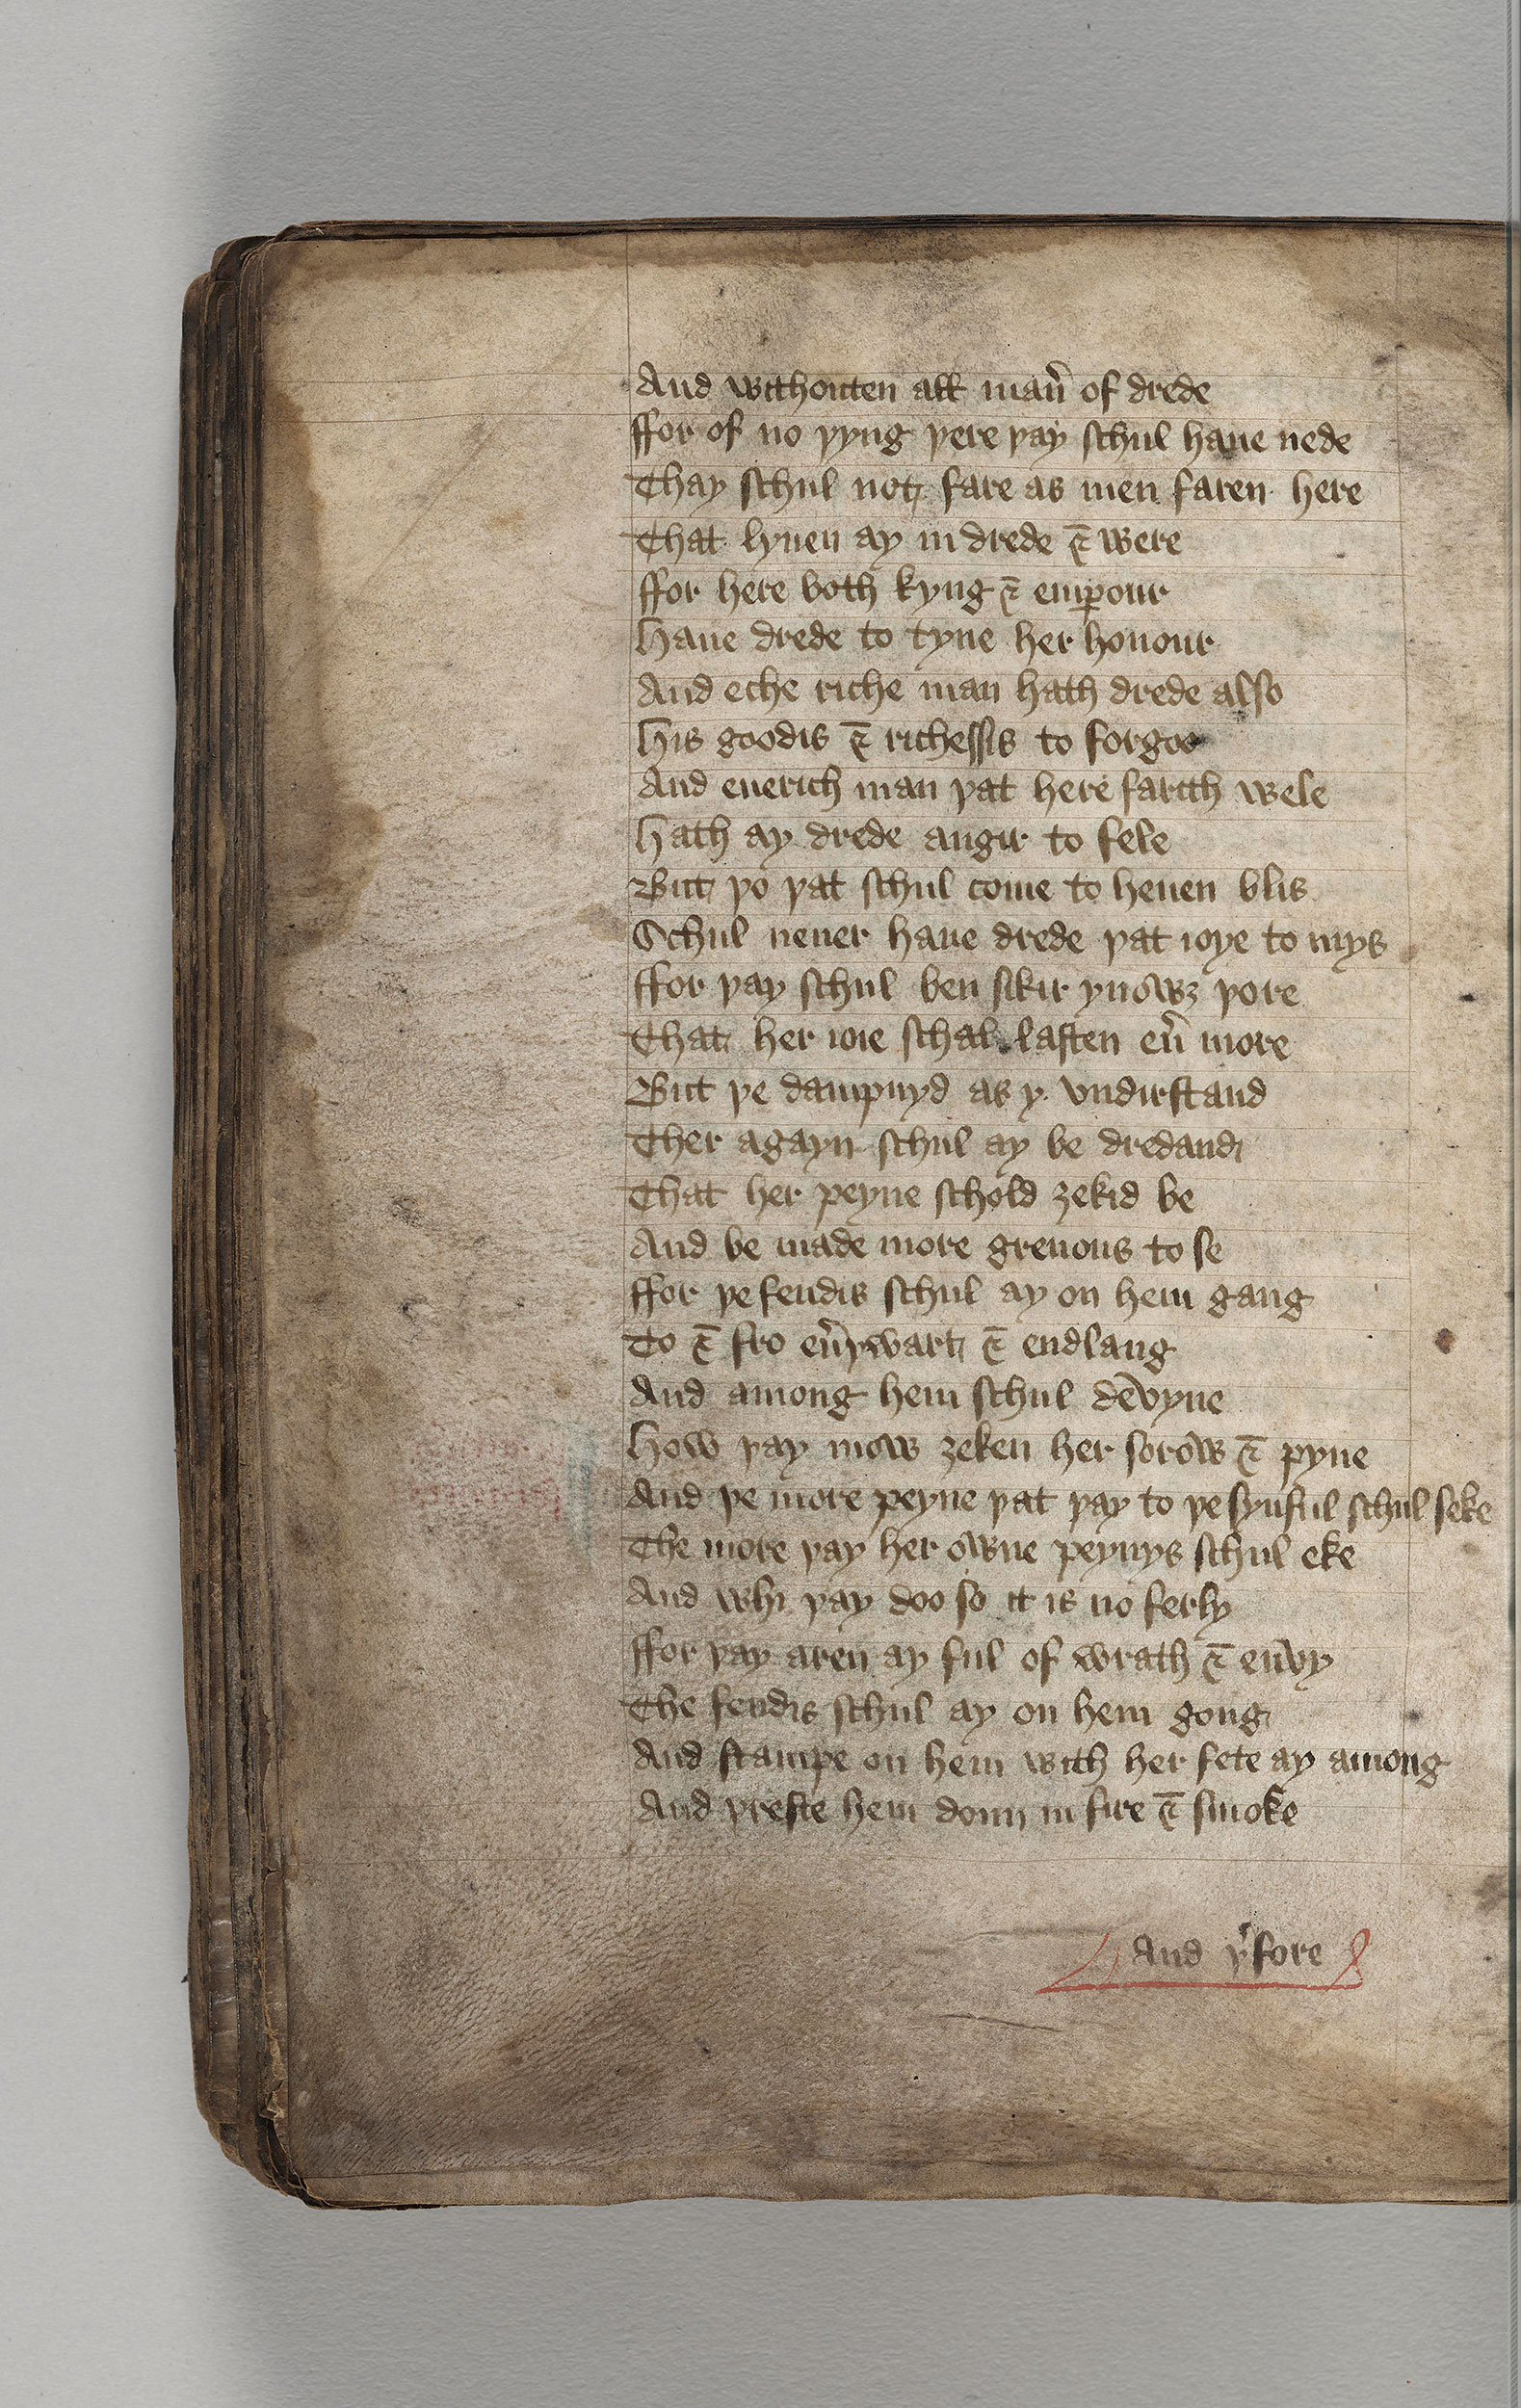 And withouten all man̉ of drede
ffor of no þyng þere þay schul haue nede
Thay schul not fare as men faren here
That lyuen ay in drede ⁊ were
ffor here both kyng ⁊ emꝑour
Haue drede to tyne her honour
And eche riche man hath drede also
His goodis ⁊ richessis to forgoo
And euerich man þat here farith wele
Hath ay drede angir to fele
But þo þat schul come to heuen blis
Schul neuer haue drede þat ioye to mys
ffor þay schul ben sikir ynowȝ þore
That her ioie schal lasten eủ more
But þe dampnyd as y vndirstand
Ther agayn schul ay be dredand
That her peyne schold ȝekid be
And be made more greuous to se
ffor þe fendis schul ay on hem gang
To ⁊ fro eủywart ⁊ endlang
And among hem schul deuyne
How þay mow ȝeken her sorow ⁊ pyne
And þe more peyne þat þay to þe synful schul seke
The more þay her owne peynys schul eke
And whi þay doo so it is no ferly
ffor þay aren ay ful of wrath ⁊ envy
The fendis schul ay on hem gong
And stampe on hem with her fete ay among
And þreste hem doun in fire ⁊ smoke
And þ̉fore